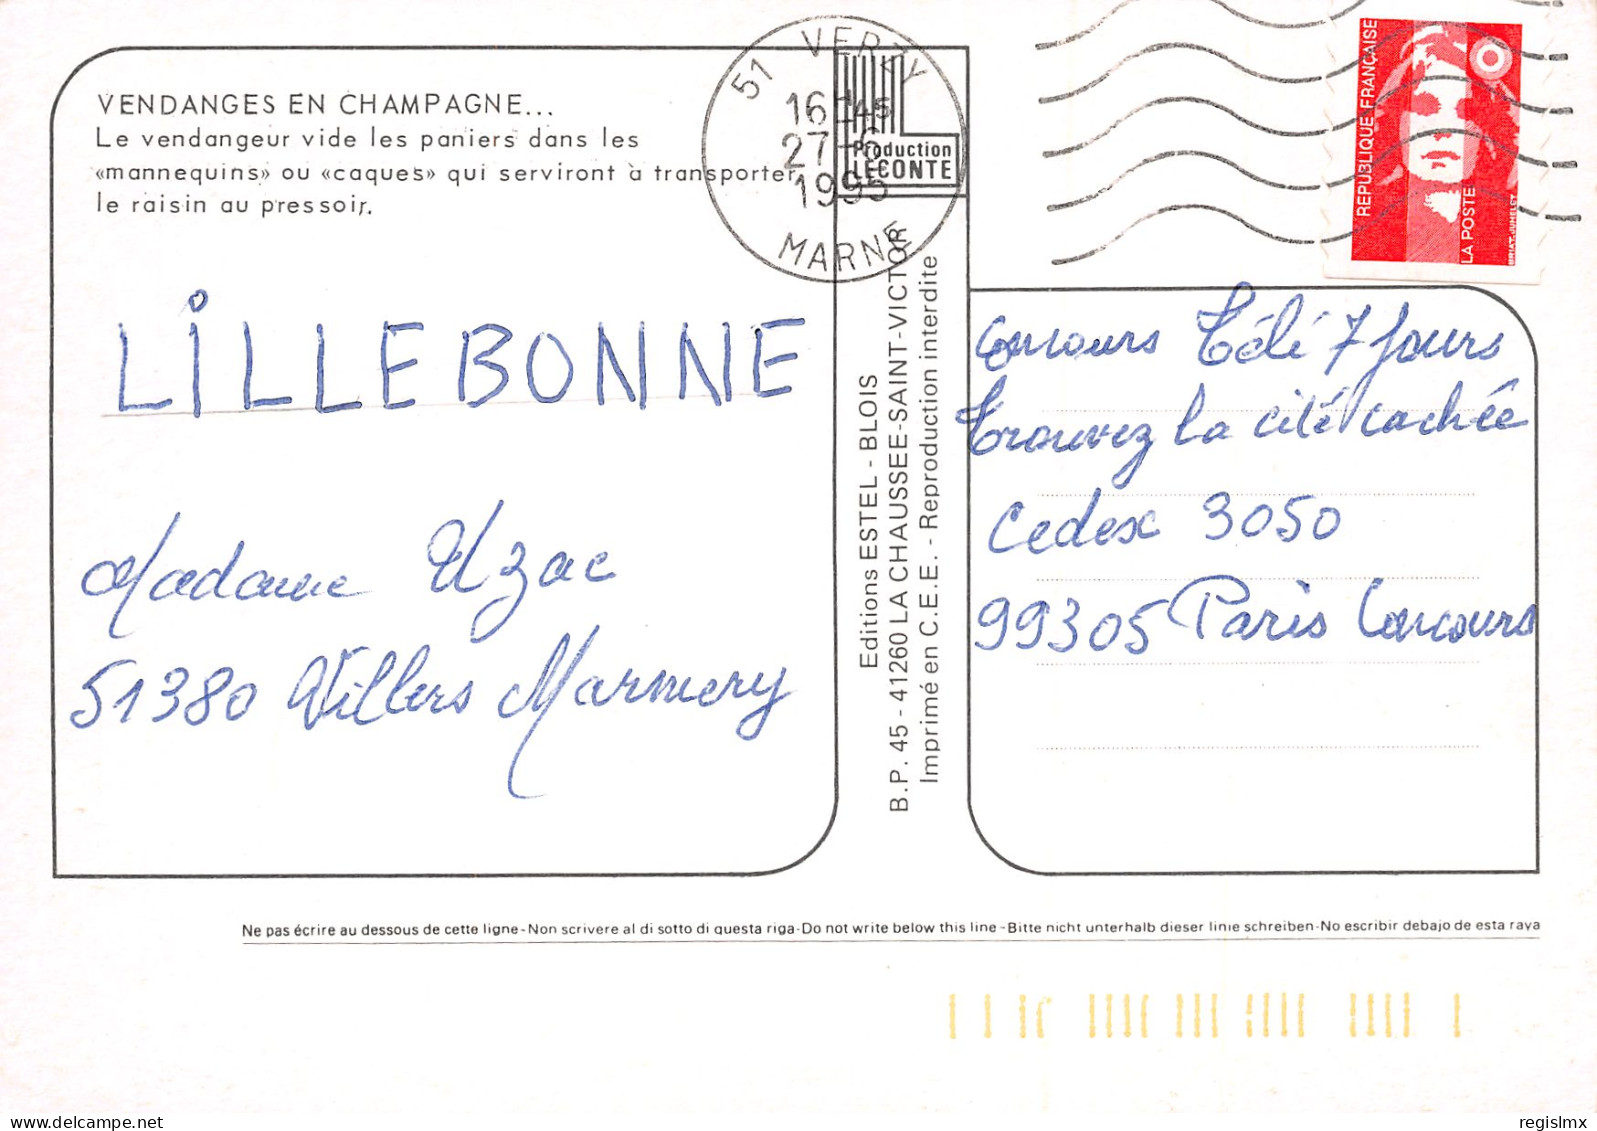 VENDANGES EN CHAMPAGNE...
Le vendangeur vide les paniers dans les
«mannequins» ou «caques» qui serviront à transporter
le raisin au pressoir.
LILLEBONNE
Madame Uzac
51380 Villers Marmery
51 VERZY
16 H 45
27-6
1995
MARNE
Production
LECONTE
Editions ESTEL - BLOIS
B.P. 45 - 41260 LA CHAUSSEE-SAINT-VICTOR
Imprimé en C.E.E. - Reproduction interdite
REPUBLIQUE FRANÇAISE
LA POSTE
BRIAT-JUMELET
Concours Télé 7 Jours
Trouvez la cité cachée
Cedex 3050
99305 Paris Concours
Ne pas écrire au dessous de cette ligne-Non scrivere al di sotto di questa riga-Do not write below this line-Bitte nicht unterhalb dieser linie schreiben-No escribir debajo de esta raya
regislmx